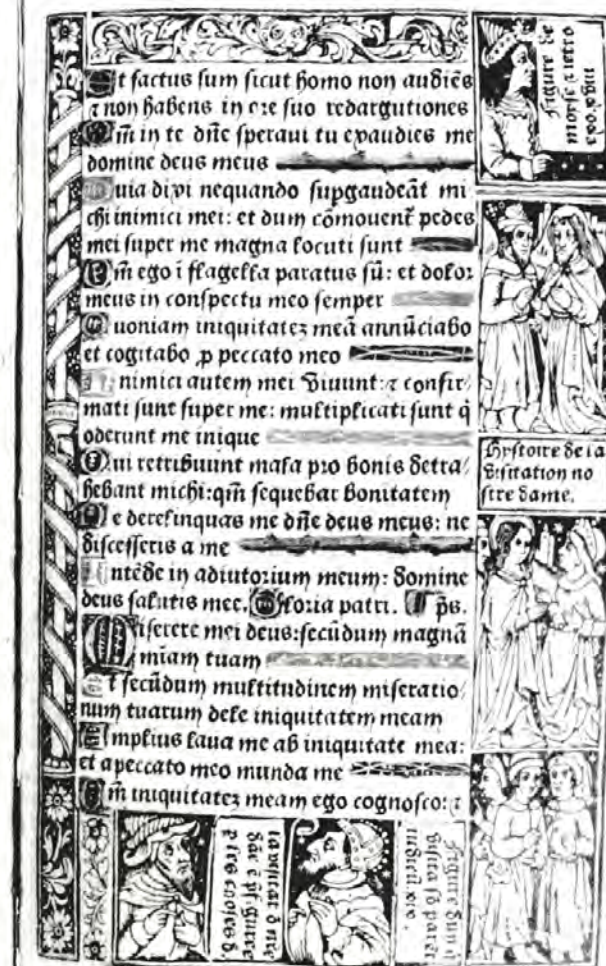 Et factus sum sicut homo non audiēs
⁊ non habens in ore suo redargutiones
Qm̄ in te dn̄e speraui tu exaudies me
domine deus meus
Quia dixi nequando supgaudeāt mi
chi inimici mei: et dum cōmouent̄ pedes
mei super me magna locuti sunt
Qm̄ ego ī flagella paratus sū: et dolor
meus in conspectu meo semper
Quoniam iniquitatez meā annūciabo
et cogitabo ꝓ peccato meo
Inimici autem mei viuunt: ⁊ confir/
mati sunt super me: multiplicati sunt q̄
oderunt me inique
Qui retribuunt mala pro bonis detra/
hebant michi: qm̄ sequebar bonitatem
Ne derelinquas me dn̄e deus meus: ne
discesseris a me
Intēde in adiutorium meum: domine
deus salutis mee. Gloria patri. p̄s.
Miserere mei deus: secūdum magnā
miam tuam
Et secūdum multitudinem miseratio/
num tuarum dele iniquitatem meam
Amplius laua me ab iniquitate mea:
et a peccato meo munda me
Qm̄ iniquitatez meam ego cognosco: ⁊
figure de
Hystoire de la
visitation no
stre dame.
la visitat
figure
Figure
visita
iudicū. xvi.